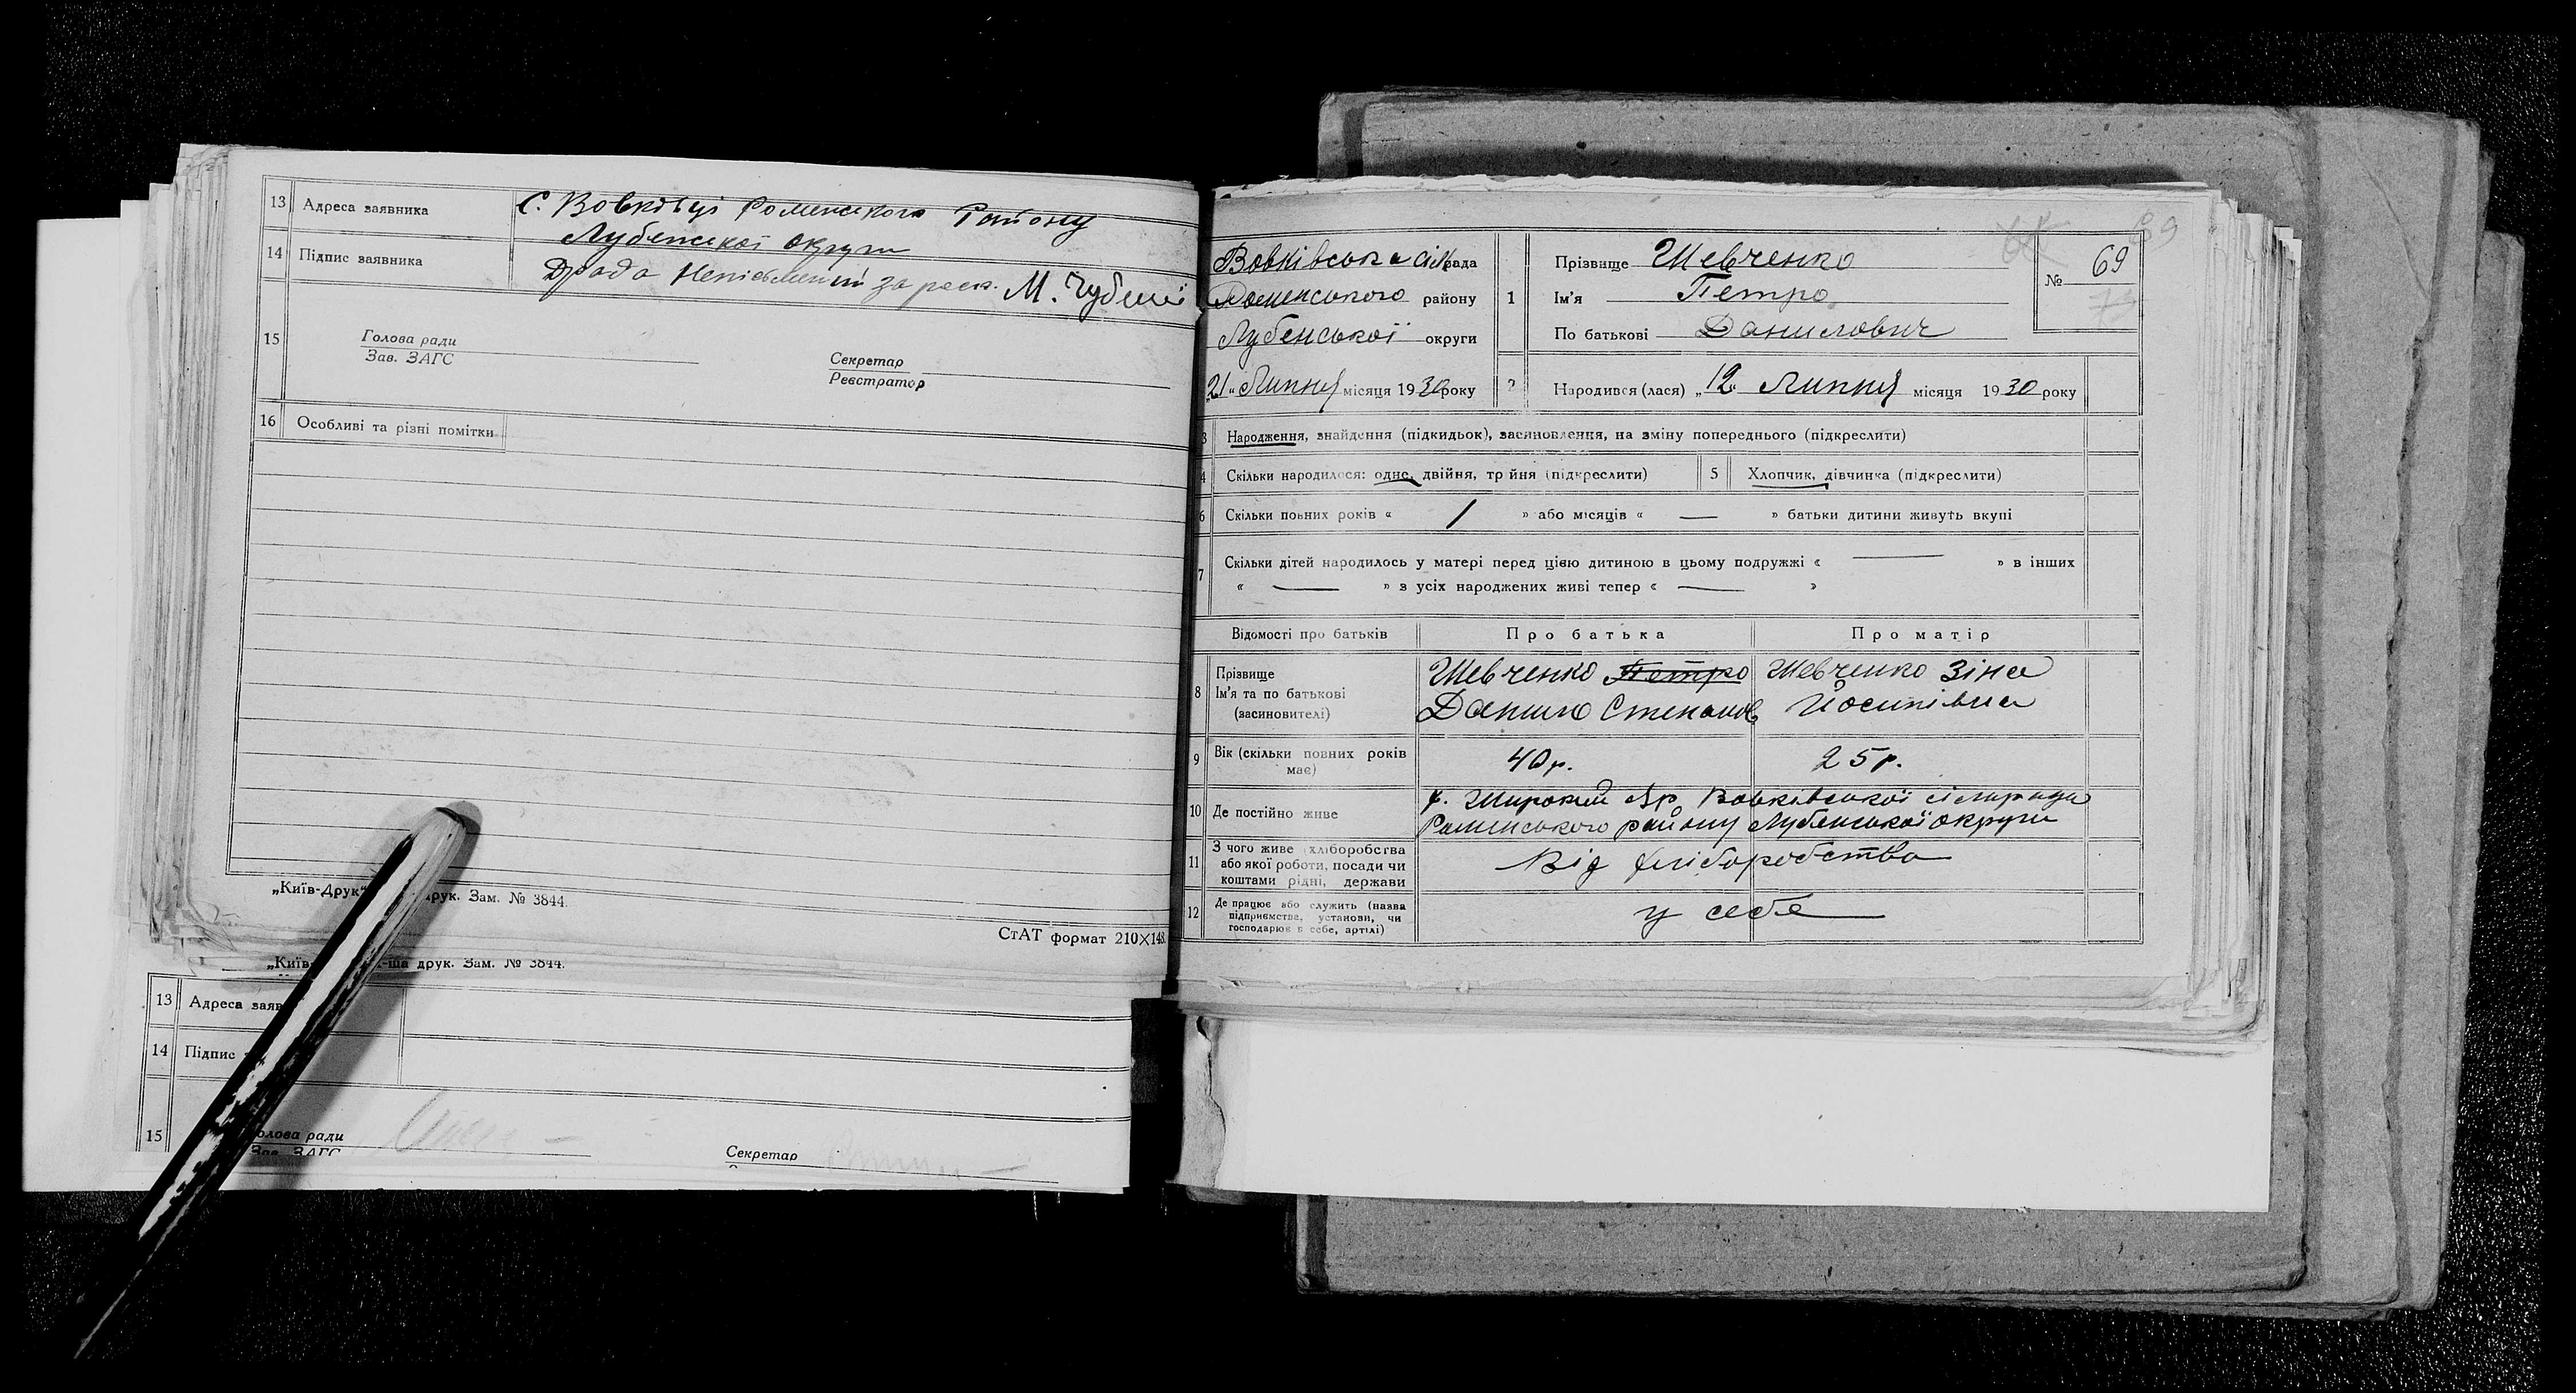 13 Адреса заявника С. Вовківці Роменського Району
Лубенської округи
14 Підпис заявника неписьменний М. Чубен
15 Голова ради
Зав. ЗАГС
Секретар
Реєстратор
16 Особливі та різні помітки
„Київ-Друк“ друк. Зам. № 3844.
СтАТ формат 210×148.
„Київ- -ша друк. Зам. № 3844.
13 Адреса заяв
14 Підпис
15 олова ради
Зав. ЗАГС
Секретар
Вовківська сільрада
Роменського району
Лубенської округи
„21“ Липня місяця 1930 року
1 Прізвище Шевченко
Ім'я Петро
По батькові Данилович
№ 69
69
2 Народився (лася) „12“ Липня місяця 1930 року
3 Народження, знайдення (підкидьок), засиновлення, на зміну попереднього (підкреслити)
4 Скільки народилося: одне, двійня, трійня (підкреслити) 5 Хлопчик, дівчинка (підкреслити)
6 Скільки повних років « 1 » або місяців « — » батьки дитини живуть вкупі
7 Скільки дітей народилось у матері перед цією дитиною в цьому подружжі « — » в інших
« — » з усіх народжених живі тепер « — »
Відомості про батьків Про батька Про матір
8 Прізвище
Ім'я та по батькові
(засиновителі)
Шевченко Петро
Данило Степанов
Шевченко Зіна
Йосипівна
9 Вік (скільки повних років
має)
40 р. 25 р.
10 Де постійно живе
х. Широкий Яр Вовківської сільради
Роменського району Лубенської округи
11 З чого живе (хліборобства
або якої роботи, посади чи
коштами рідні, держави
Від хліборобства
12 Де працює або служить (назва
підприємства, установи, чи
господарює в себе, артілі)
у себе